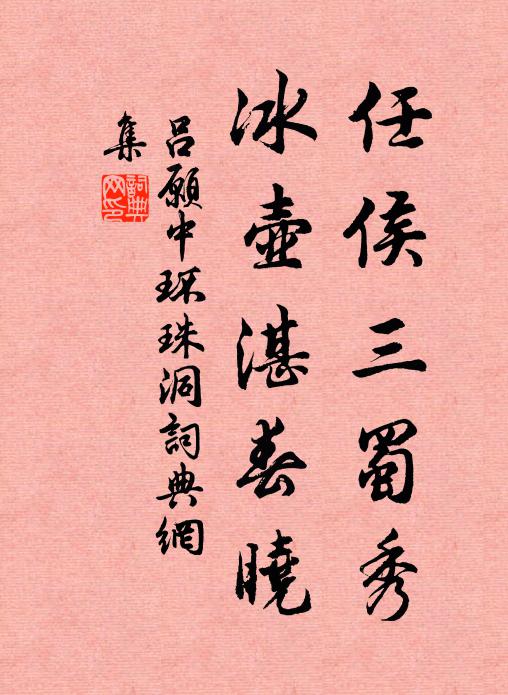 任侯三蜀秀
冰壺湛春曉
吕願中环珠洞詞典網
集
詞典網印